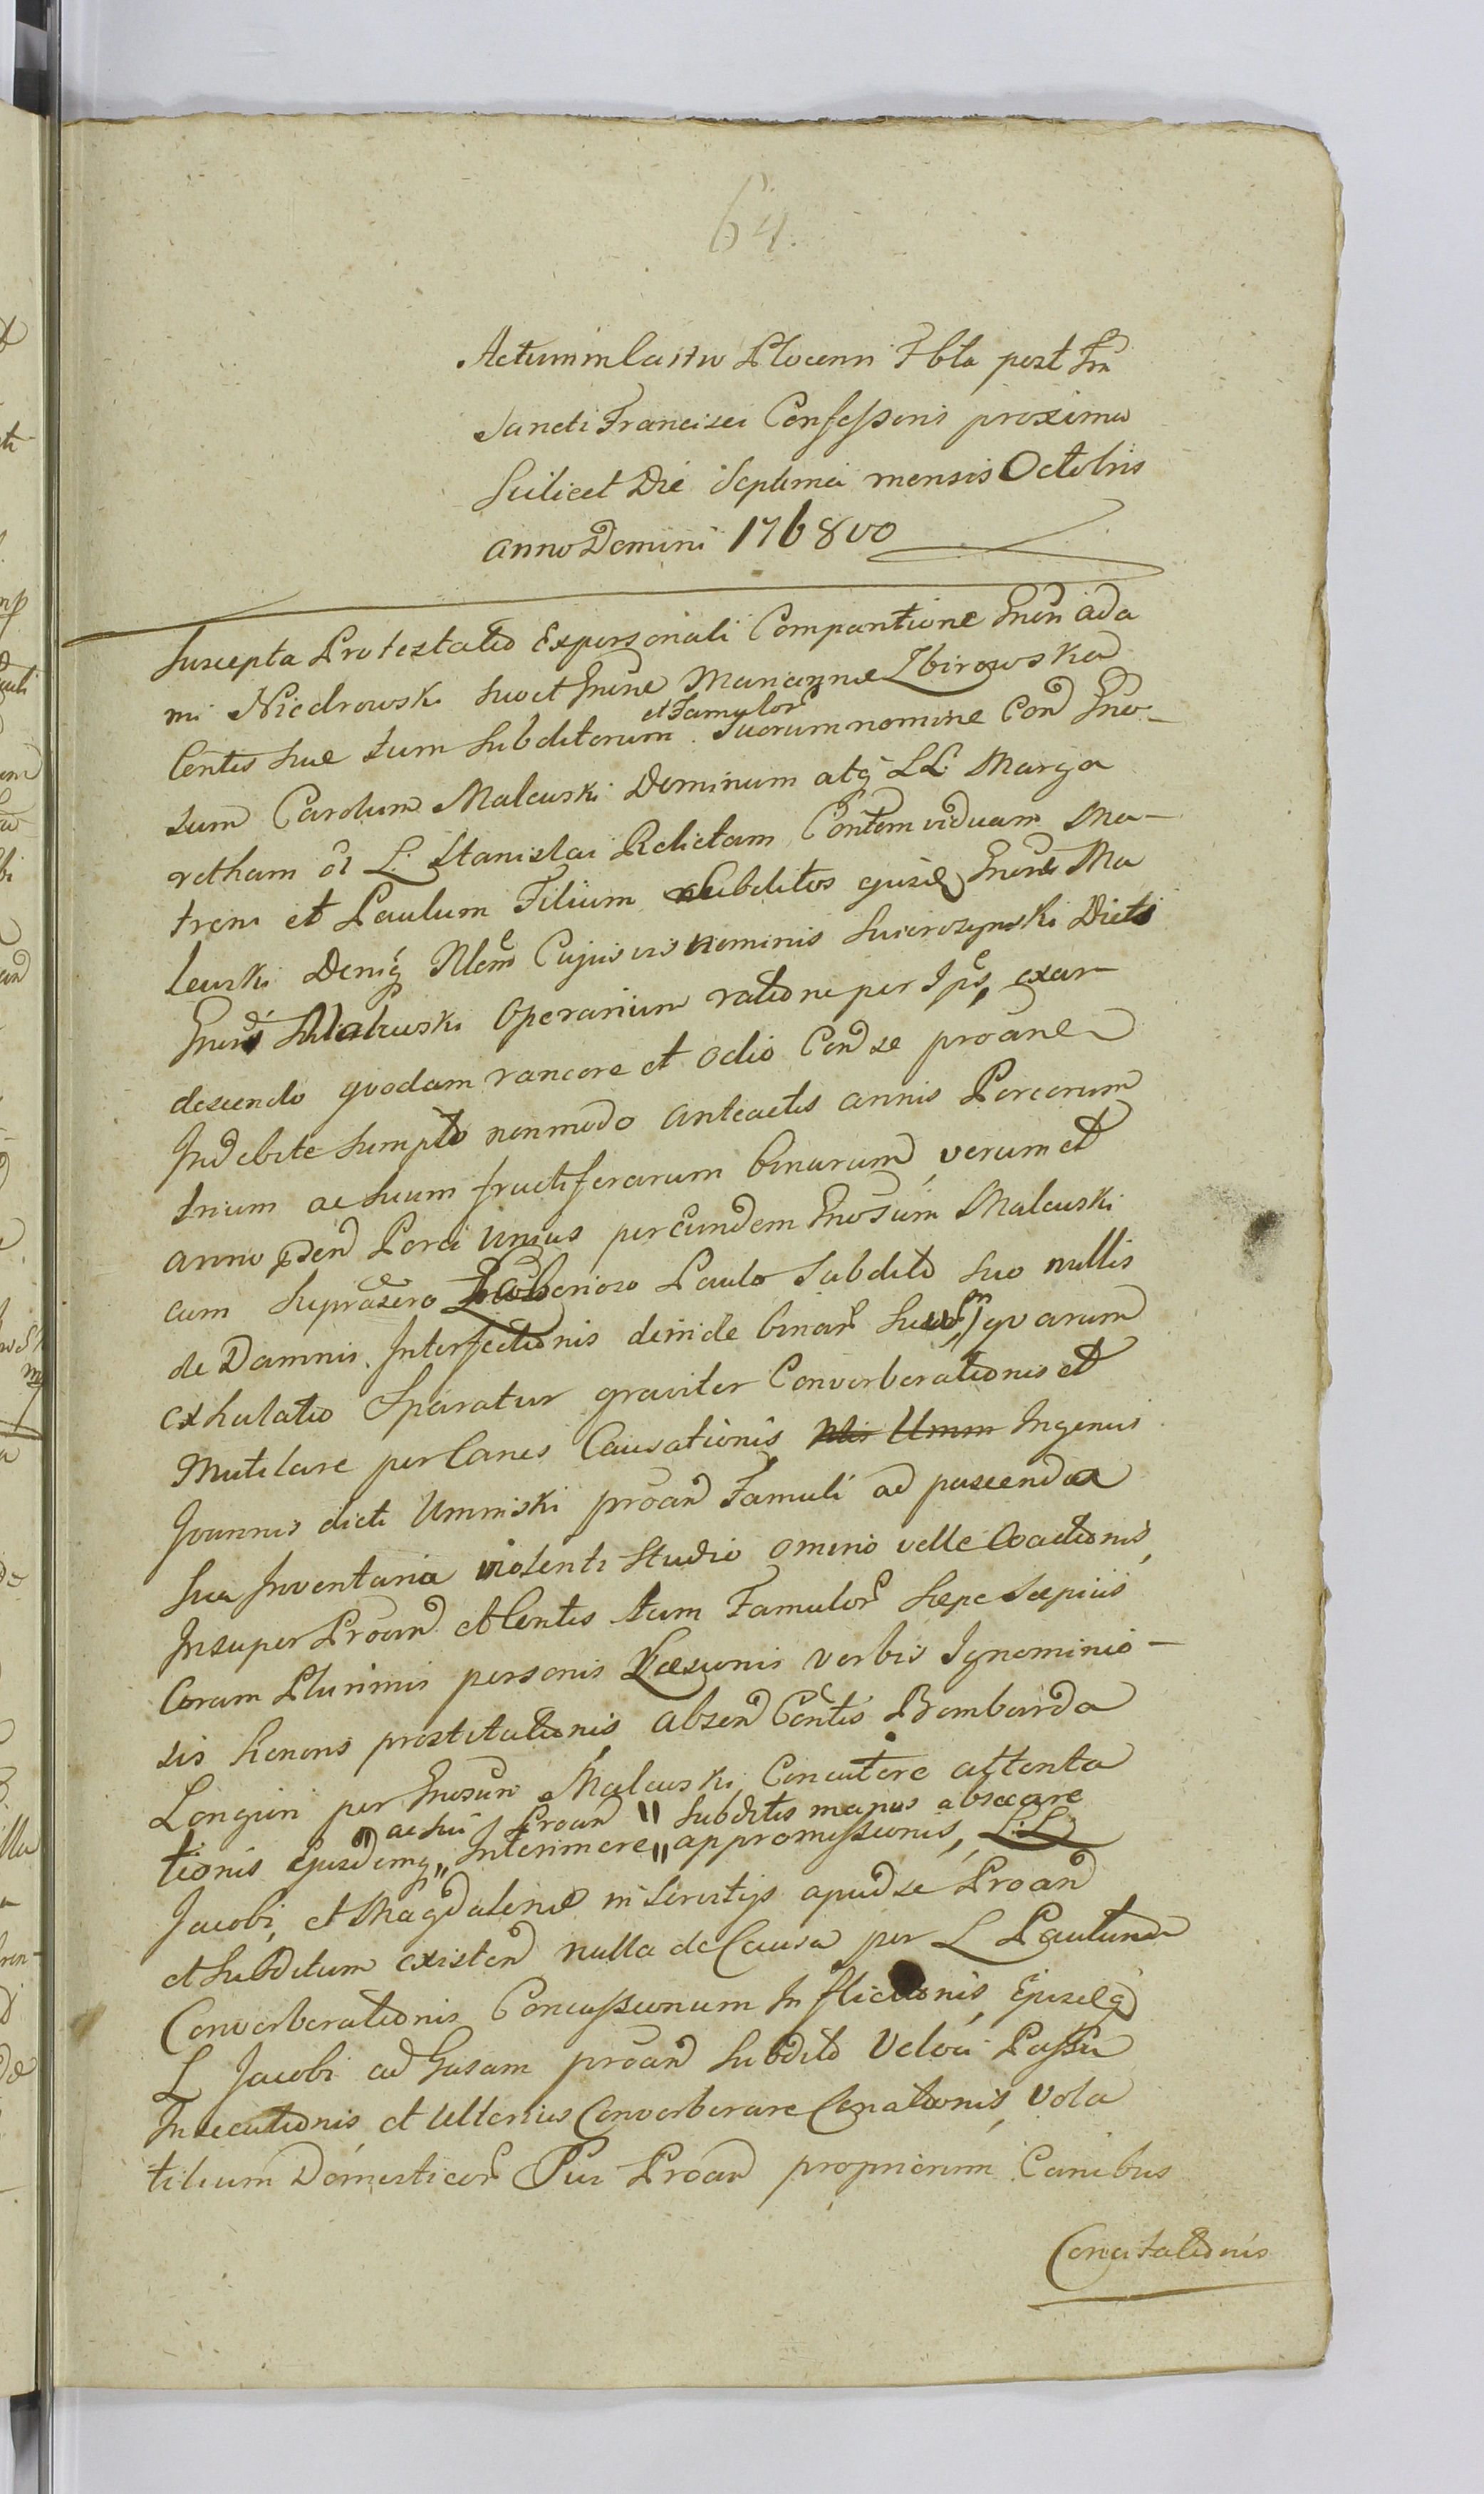 64.
Actum in Castro Plocenn Fbta post Fm
Sancti Francisci Confessoris proxima
Scilicet Die Septima mensis Octobris
anno Domini 1768vo
Suscepta Protestatio Ex personali Comparitione Gnen Ada
mi Niedrowski suo et Gnene Marianne Zbirowska
Contis suae tum Subditorum et Famulor Suorum nomine Con Gno-
sum Carolum Malewski Dominum atq LL Marga
retham ol L. Stanislai Relictam Contem viduam Ma-
trem et Paulum Filium Subditos ejusd Gnene Ma
lewski Deniq Nlem Cujusvis nominis Swierczynski Dicti
Gnesi Malewski Operarium ratione per Ipos, exar
descendo quodam rancore et odio Con se proane
Indebite sumpto non modo anteactis annis Porcorum
trium ac Suum fructiferarum binarum, verum et
anno psen Porci unius per eundem Gnosum Malewski
cum suprascro Laborioso Paulo Subdito suo nullis
de Damnis Interfectionis deinde binar Suum, quarum
exhalatio Sparatur graviter Converberationis et
Mutilare per Canes Causationis, Nlis Umm Ingenui
Joannis dicti Uminski proan Famuli ad pascenda
sua Inventaria violenti Studio omnino velle Coactionis,
Insuper Proan et Contis tum Famulor Saepe Saepius
Coram Plurimis personis Laesionis verbis Ignominio-
sis honoris prostitutionis, absen Contis Bombarda
Longiori per Gnosum Malewski, Concutere attenta
tionis Ejusdemq " ac sui Proan " Subditis manus absecare
Interimere " appromissionis, LL
Jacobi, et Magdalene in Servitys apud se Proan
et Subditum existen nulla de Causa per L Paulum
Converberationis Concussionum Inflictionis, Ejusdq
L Jacobi ad Casam proan Subdito Veloci Passu
Insecutionis et Ulterius Converberare Conationis, Vola
tilium Domesticor Pui Proan propriorum Canibus
Concitationis